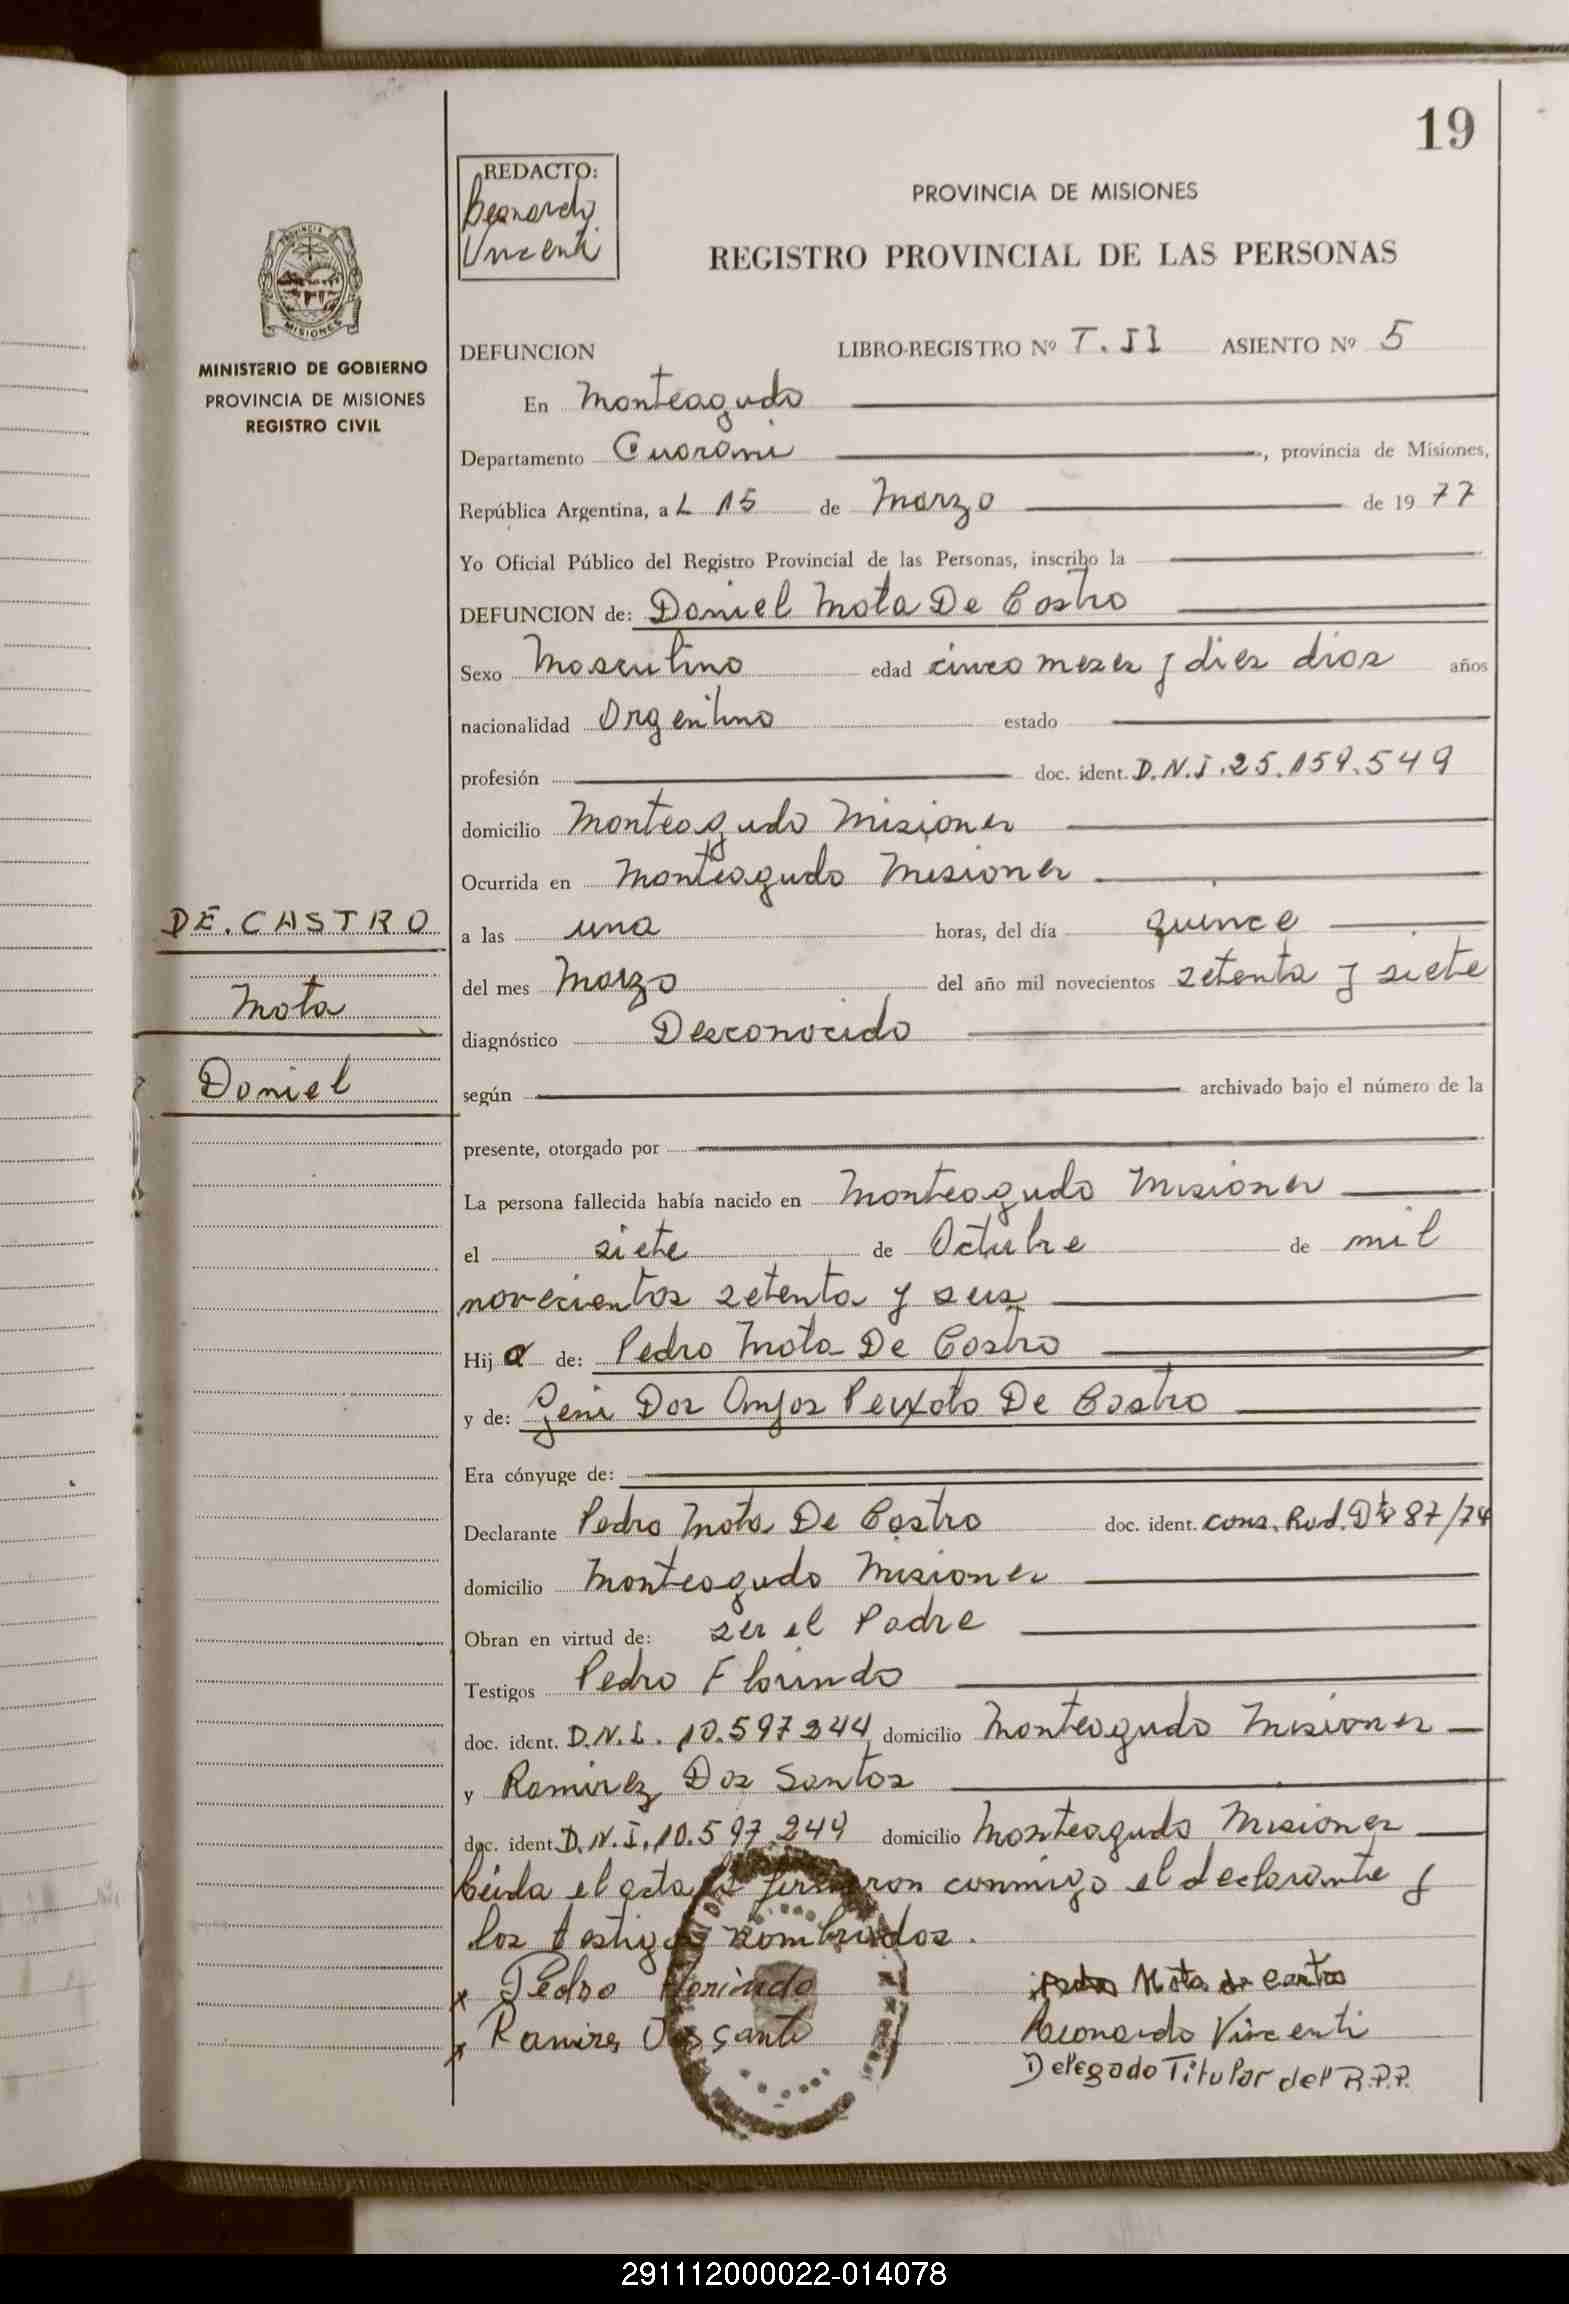 19
REDACTO:
Leonardo
Vincenti
PROVINCIA DE MISIONES
REGISTRO PROVINCIAL DE LAS PERSONAS
PROVINCIA DE
MISIONES
MINISTERIO DE GOBIERNO
PROVINCIA DE MISIONES
REGISTRO CIVIL
DEFUNCION LIBRO-REGISTRO Nº T. II ASIENTO Nº 5
En Monteagudo
Departamento Guarani, provincia de Misiones,
República Argentina, a L 15 de Marzo de 19 77
Yo Oficial Público del Registro Provincial de las Personas, inscribo la
DEFUNCION de: Daniel Mota De Castro
Sexo Masculino edad cinco meses y diez dias años
nacionalidad Argentino estado
profesión doc. ident. D.N.I. 25.159.549
domicilio Monteagudo Misiones
Ocurrida en Monteagudo Misiones
DE. CASTRO
Mota
Daniel
a las una horas, del día quince
del mes Marzo del año mil novecientos setenta y siete
diagnóstico Desconocido
según archivado bajo el número de la
presente, otorgado por
La persona fallecida había nacido en Monteagudo Misiones
el siete de Octubre de mil
novecientos setenta y seis
Hij o de: Pedro Mota De Castro
y de: Geni Dos Anjos Peixoto De Castro
Era cónyuge de:
Declarante Pedro Mota De Castro doc. ident. cons. Rad. 87/74
domicilio Monteagudo Misiones
Obran en virtud de: ser el Padre
Testigos Pedro Florindo
doc. ident. D.N.I. 10.597 244 domicilio Monteagudo Misiones
y Ramirez Dos Santos
doc. ident. D.N.I. 10.597.249 domicilio Monteagudo Misiones
Leida el acta la firmaron conmigo el declarante y
los testigos nombrados.
x Pedro Florindo Pedro Mota de Castro
x Ramires Dos Santo Leonardo Vincenti
Delegado Titular del R.P.P.
291112000022-014078